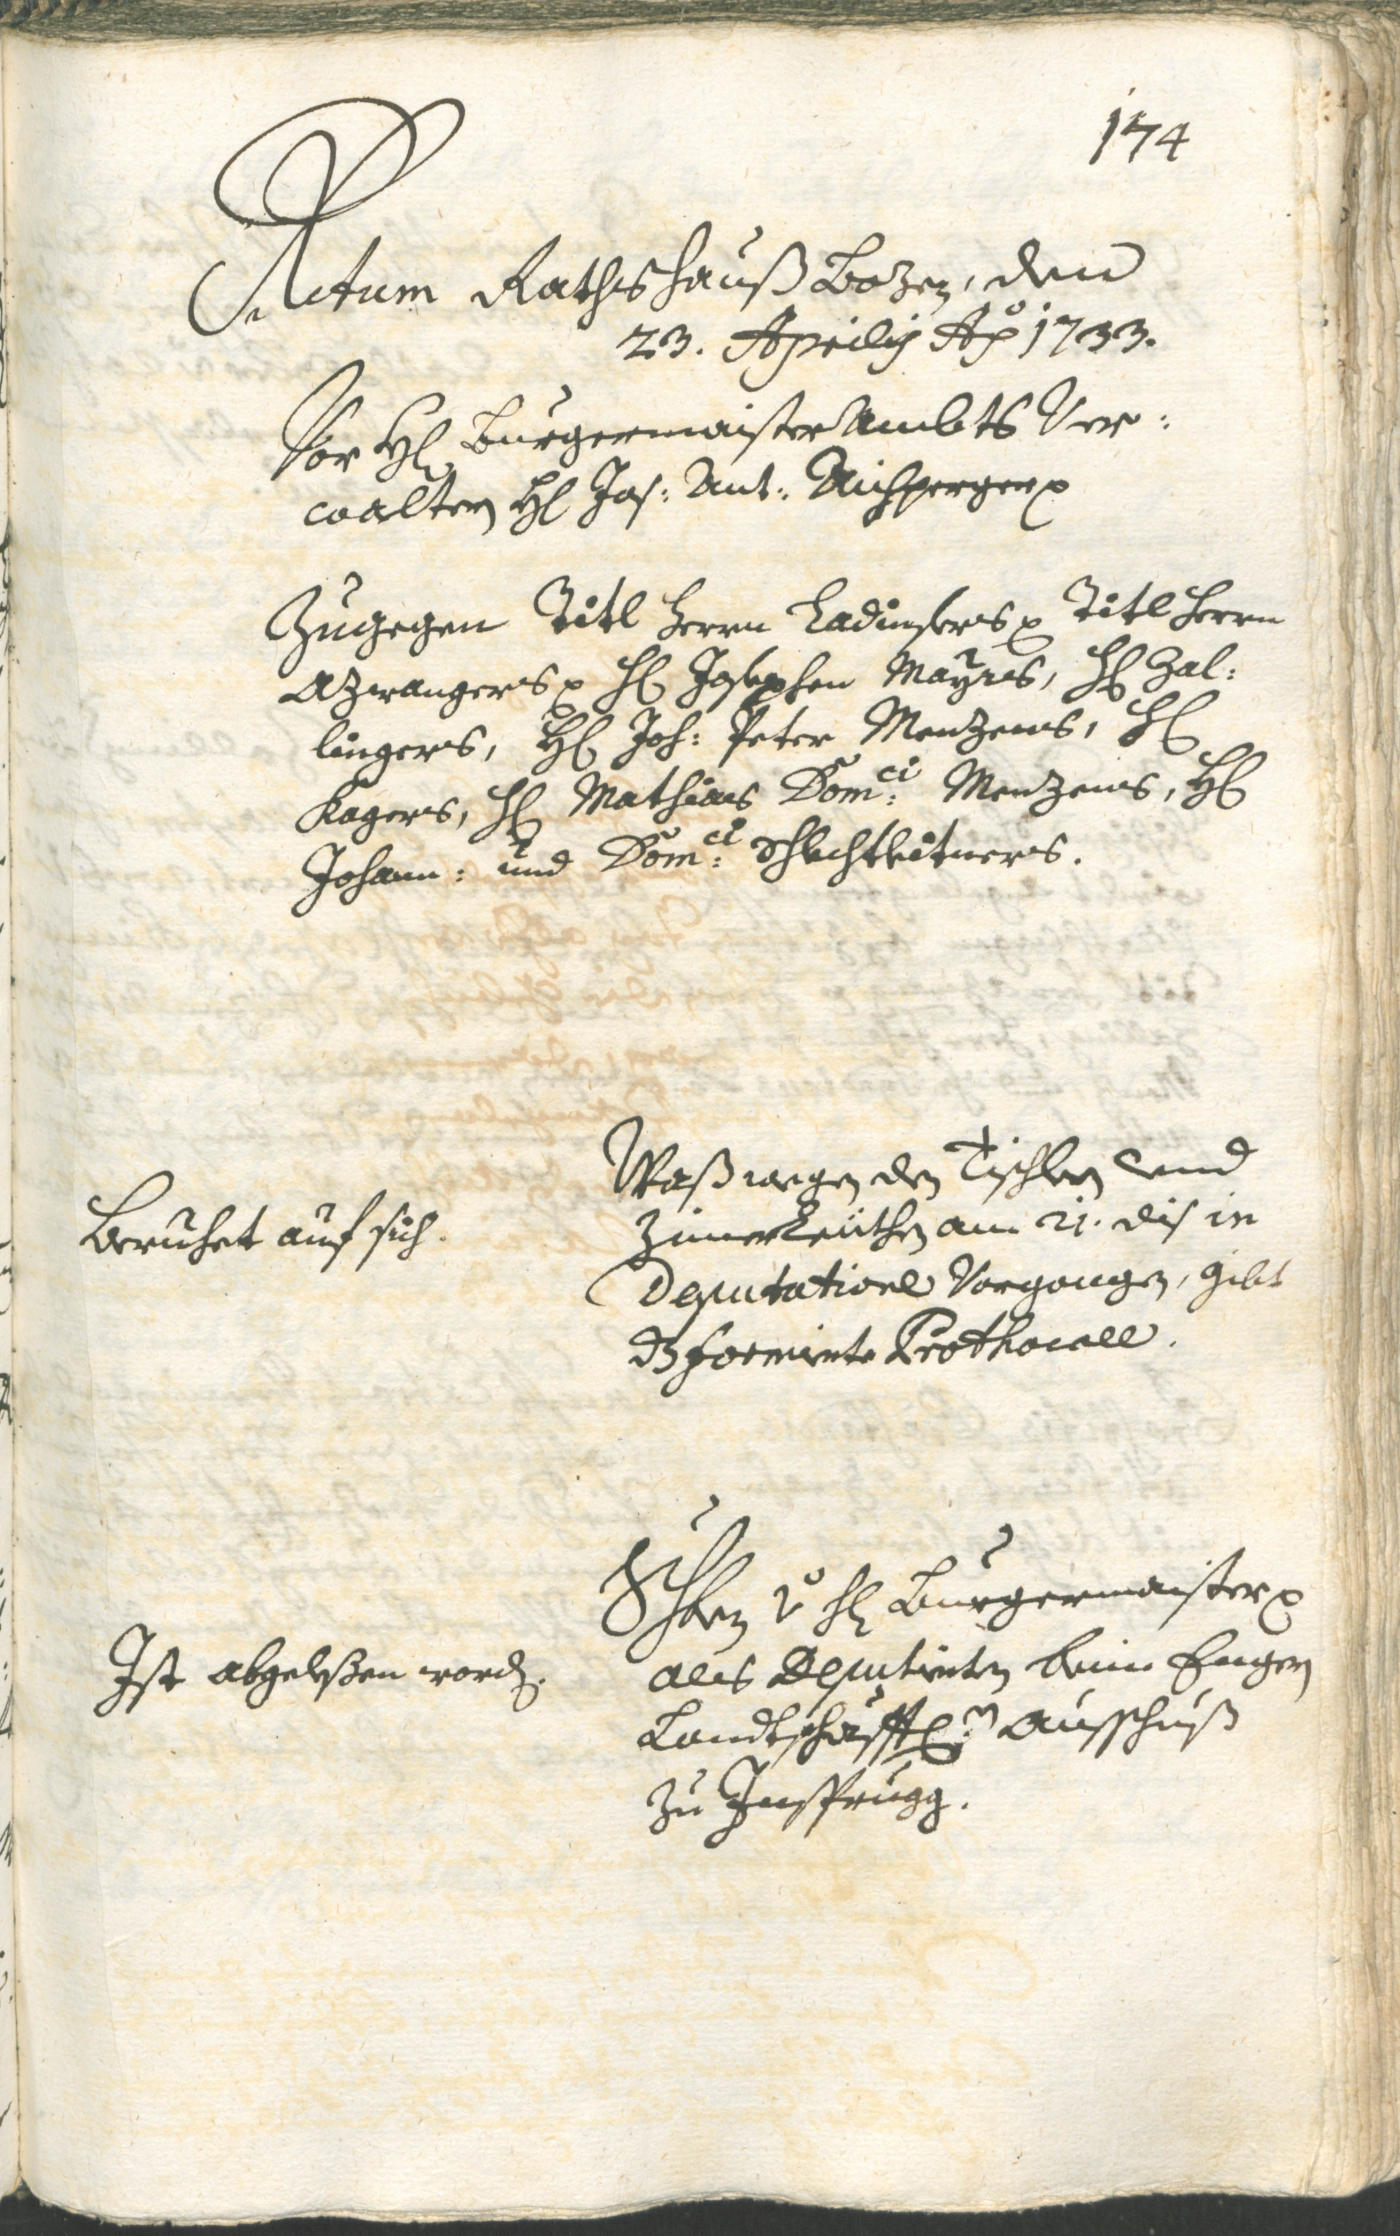 174
Actum Rathshauß Bozen, den
23. Aprilis Ao 1733.
Vor H. Burgermaister Ambts Ver:
walter H. Jos: Ant: Aichperger
Zugegen Titl Herrn Ladinsers Titl Herrn
Azwangers H. Josephen Mayrs, H. Zal:
lingers, H. Joh: Peter Menzens, H.
Kagers, H. Mathias Dom:ci Menzens, H.
Johann: und Dom:ci Schlechtleitners.
Beruhet auf sich.
Waß wegen den Tischlern und
Zimerleüthen am 21. dis in
Deputatione Vorgangen, gibt
dz formirte Prothocoll.
Ist abgeleßen word.
Schreiben v. H. Burgermaister
als Deputierten beim Engern
Landtschafftl:n Ausschuß
zu Insprugg.